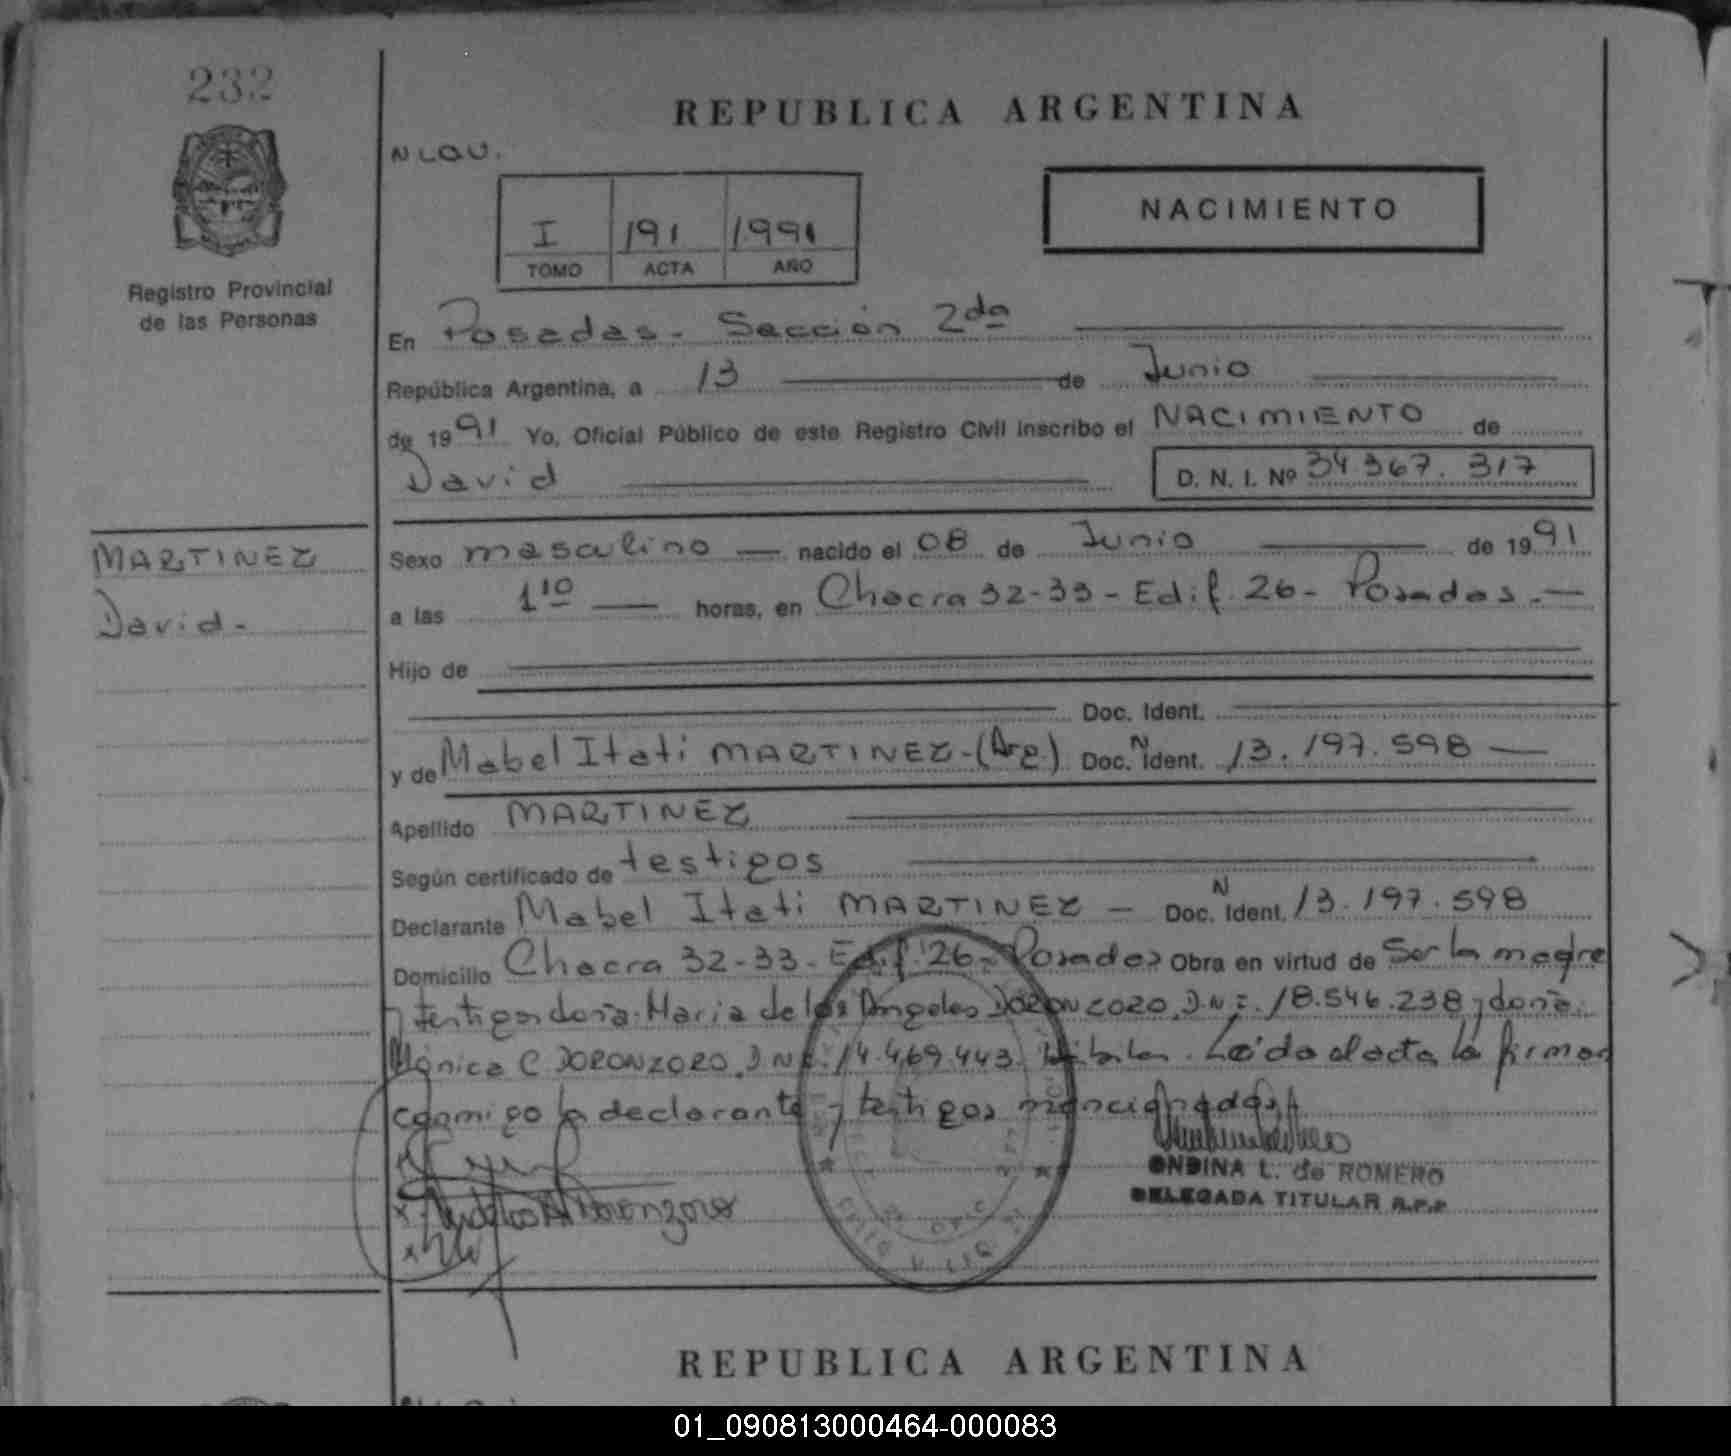 232
REPUBLICA ARGENTINA
I 191 1991
TOMO ACTA AÑO
NACIMIENTO
Registro Provincial
de las Personas
En Posadas - Sección 2da
República Argentina, a 13 de Junio
de 1991 Yo, Oficial Público de este Registro Civil inscribo el NACIMIENTO de
David D. N. I. Nº 34 367. 317
MARTINEZ
David -
Sexo masculino — nacido el 08 de Junio de 1991
a las 1 10 — horas, en Chacra 32-33 - Edif. 26 - Posadas. —
Hijo de
Doc. Ident.
y de Mabel Itati MARTINEZ - (Arg.) Doc. N Ident. 13. 197. 598 —
Apellido MARTINEZ
Según certificado de testigos
Declarante Mabel Itati MARTINEZ — Doc. N Ident. 13. 197. 598
Domicilio Chacra 32-33 - Edif. 26 - Posadas Obra en virtud de Ser la madre
y testigos doña María de los Angeles DORONZORO D.N.I. 18.546.238 y doña
Mónica C DORONZORO, D N I. 14.469.443. Leída el acta la firman
conmigo la declarante y testigos mencionados
ONDINA L. de ROMERO
DELEGADA TITULAR R.P.P
REPUBLICA ARGENTINA
01_090813000464-000083